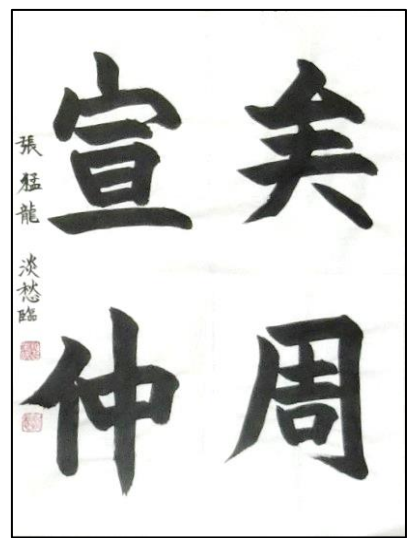 矣周
宣仲
張猛龍 淡愁臨